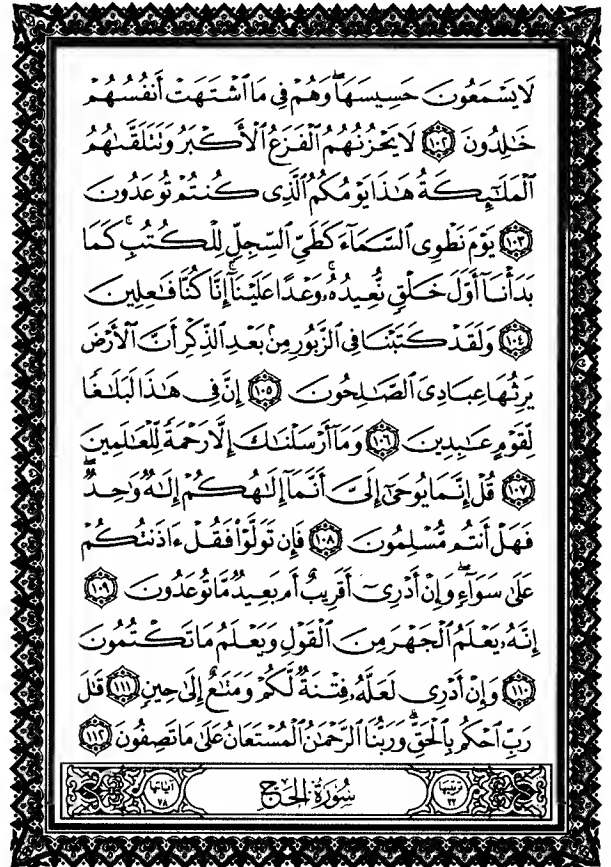 لَا يَسْمَعُونَ حَسِيسَهَا ۖ وَهُمْ فِي مَا ٱشْتَهَتْ أَنفُسُهُمْ
خَٰلِدُونَ ١٠٢ لَا يَحْزُنُهُمُ ٱلْفَزَعُ ٱلْأَكْبَرُ وَتَتَلَقَّىٰهُمُ
ٱلْمَلَٰٓئِكَةُ هَٰذَا يَوْمُكُمُ ٱلَّذِى كُنتُمْ تُوعَدُونَ
١٠٣ يَوْمَ نَطْوِى ٱلسَّمَآءَ كَطَىِّ ٱلسِّجِلِّ لِلْكُتُبِ ۚ كَمَا
بَدَأْنَآ أَوَّلَ خَلْقٍ نُّعِيدُهُۥ ۚ وَعْدًا عَلَيْنَآ ۚ إِنَّا كُنَّا فَٰعِلِينَ
١٠٤ وَلَقَدْ كَتَبْنَا فِى ٱلزَّبُورِ مِنۢ بَعْدِ ٱلذِّكْرِ أَنَّ ٱلْأَرْضَ
يَرِثُهَا عِبَادِىَ ٱلصَّٰلِحُونَ ١٠٥ إِنَّ فِى هَٰذَا لَبَلَٰغًا
لِّقَوْمٍ عَٰبِدِينَ ١٠٦ وَمَآ أَرْسَلْنَٰكَ إِلَّا رَحْمَةً لِّلْعَٰلَمِينَ
١٠٧ قُلْ إِنَّمَا يُوحَىٰٓ إِلَىَّ أَنَّمَآ إِلَٰهُكُمْ إِلَٰهٌ وَٰحِدٌ ۖ
فَهَلْ أَنتُم مُّسْلِمُونَ ١٠٨ فَإِن تَوَلَّوْا۟ فَقُلْ ءَاذَنتُكُمْ
عَلَىٰ سَوَآءٍ ۖ وَإِنْ أَدْرِىٓ أَقَرِيبٌ أَم بَعِيدٌ مَّا تُوعَدُونَ ١٠٩
إِنَّهُۥ يَعْلَمُ ٱلْجَهْرَ مِنَ ٱلْقَوْلِ وَيَعْلَمُ مَا تَكْتُمُونَ
١١٠ وَإِنْ أَدْرِى لَعَلَّهُۥ فِتْنَةٌ لَّكُمْ وَمَتَٰعٌ إِلَىٰ حِينٍ ١١١ قَٰلَ
رَبِّ ٱحْكُم بِٱلْحَقِّ ۗ وَرَبُّنَا ٱلرَّحْمَٰنُ ٱلْمُسْتَعَانُ عَلَىٰ مَا تَصِفُونَ ١١٢
ترتيبها ٢٢ سُورَةُ الحَجّ آياتها ٧٨